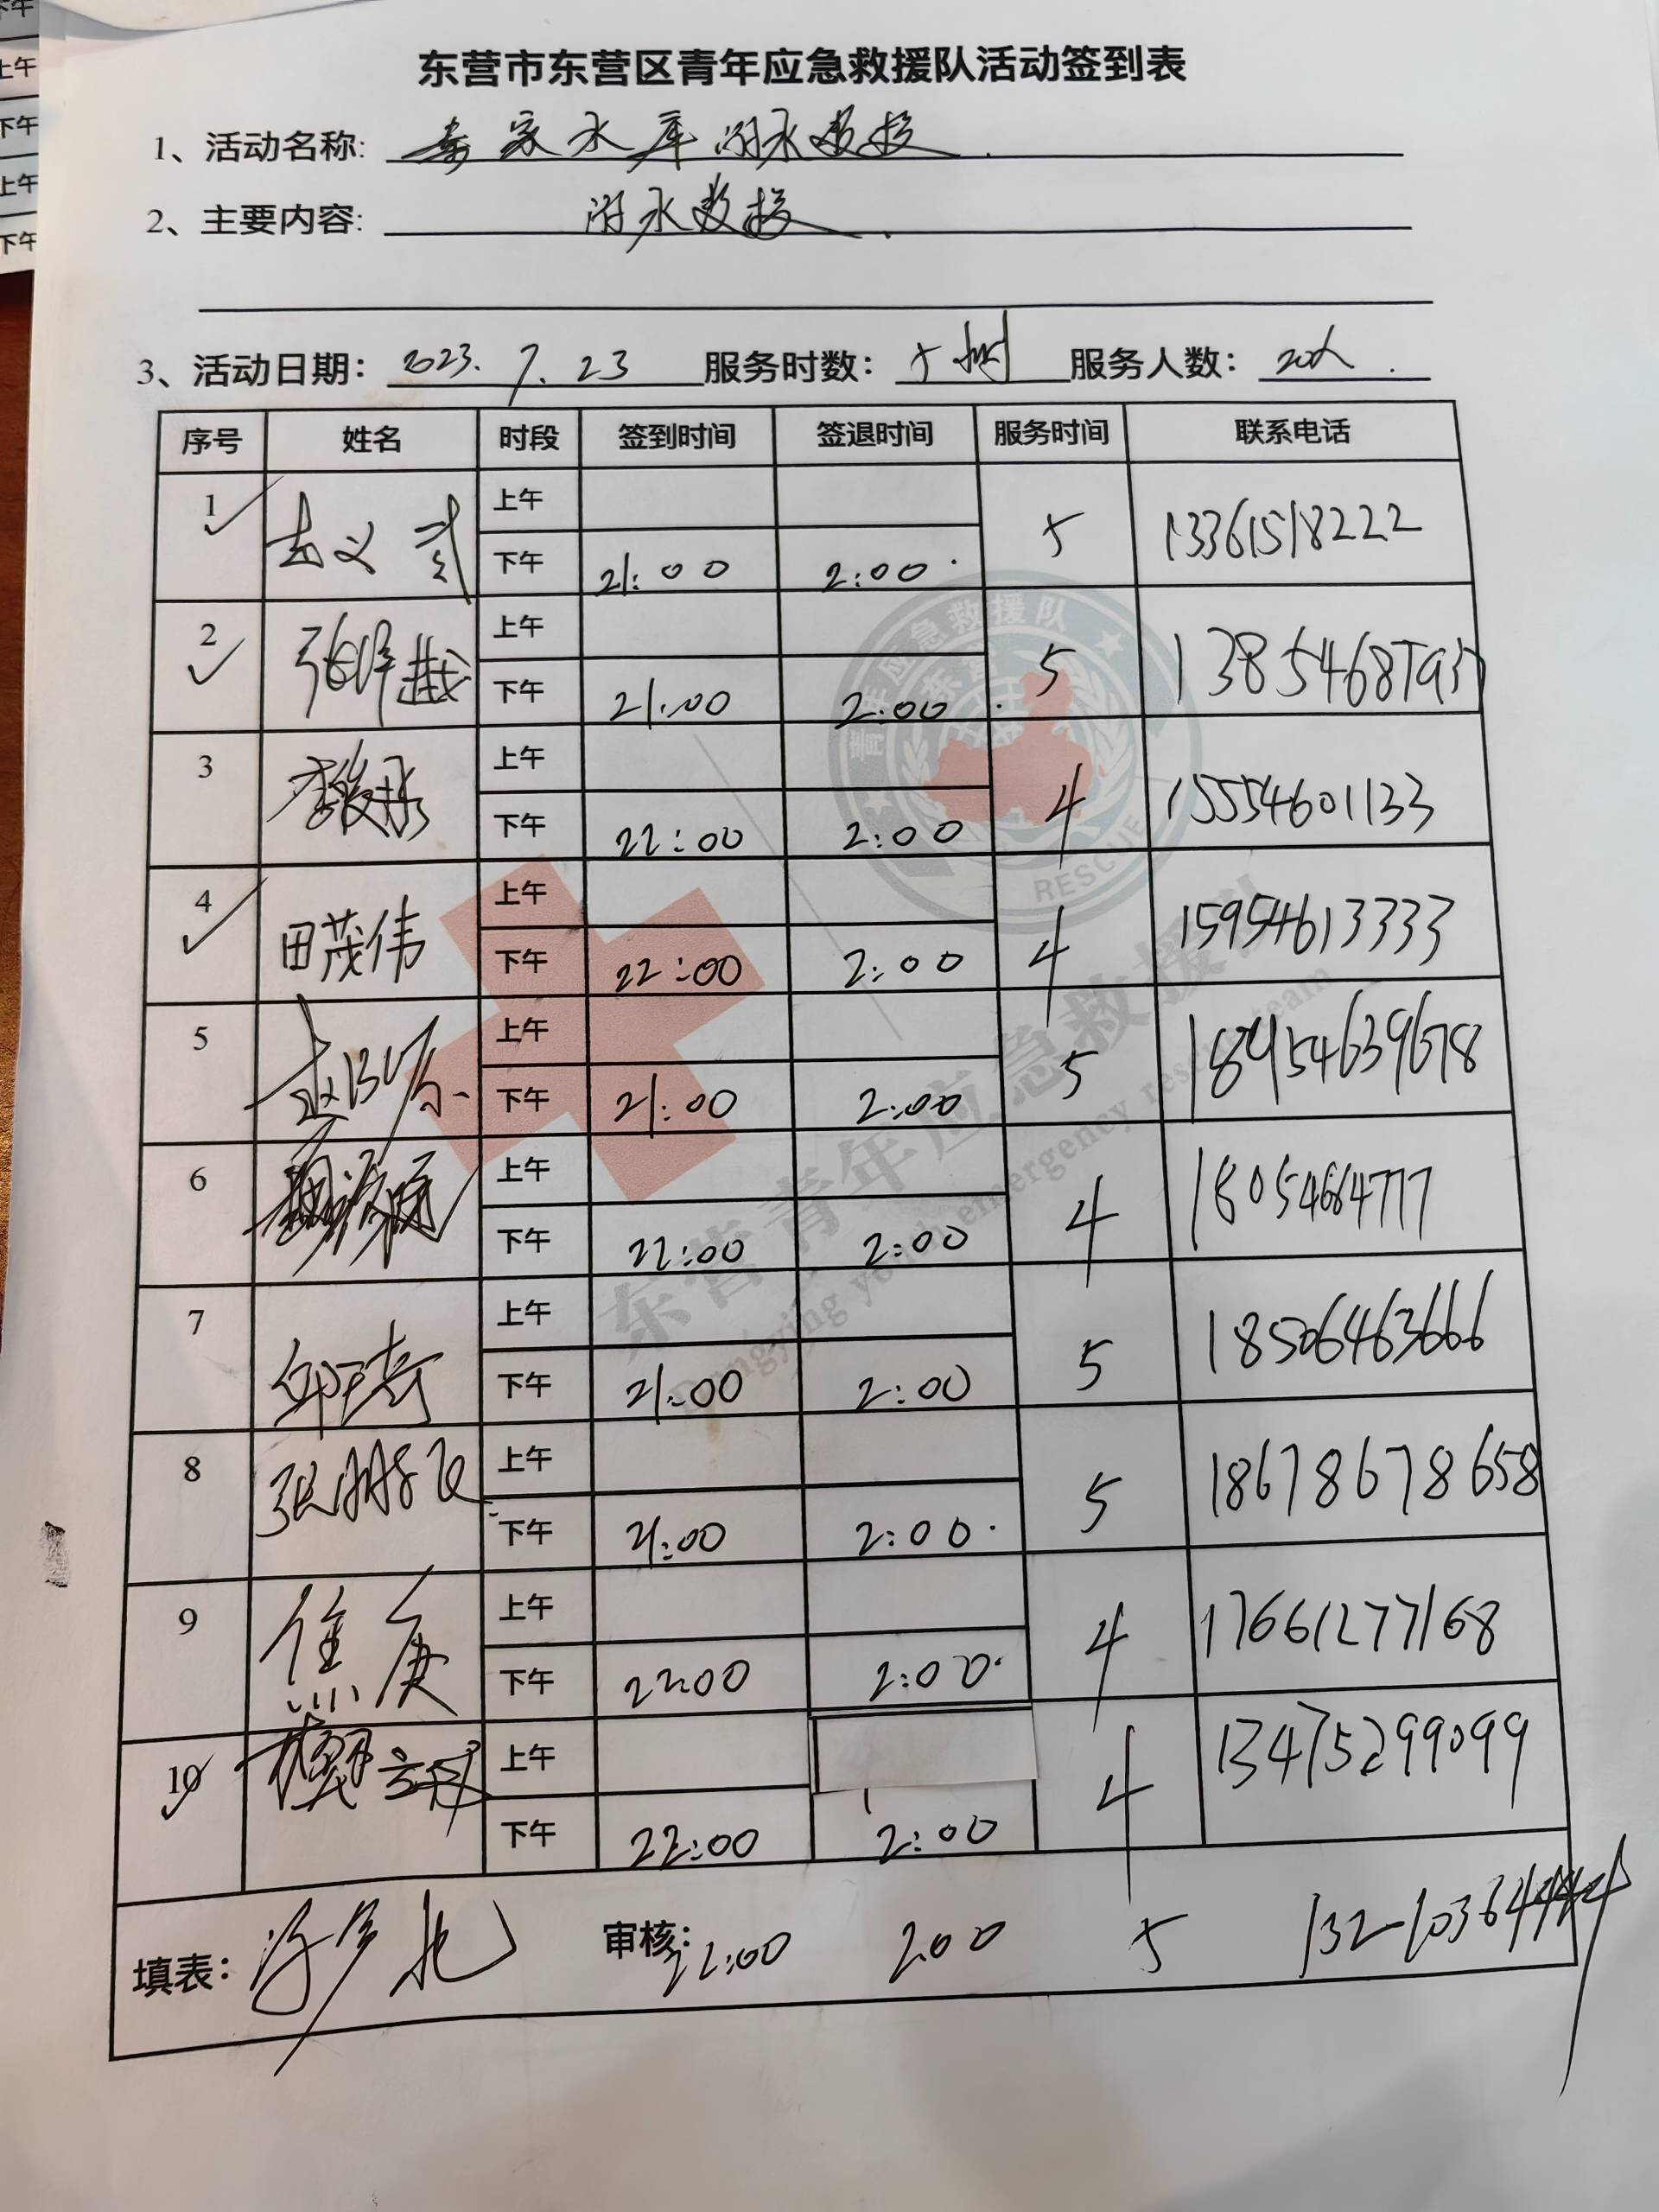 东营市东营区青年应急救援队活动签到表
1、活动名称: 家水库溺水救援
2、主要内容: 溺水救援
3、活动日期: 2023.7.23 服务时数: 5小时 服务人数: 20人.
序号 姓名 时段 签到时间 签退时间 服务时间 联系电话
1 上午
下午 21:00 2:00 5 13361518222
2 上午
下午 21:00 2:00 5
3 上午
下午 22:00 2:00 4 15554601133
4 田茂伟 上午
下午 22:00 2:00 4 15954613333
5 上午
下午 21:00 2:00 5
6 上午
下午 22:00 2:00 4 18054664777
7 上午
下午 21:00 2:00 5 18506463666
8 张鹏飞 上午
下午 21:00 2:00 5 18678678658
9 焦庚 上午
下午 22:00 2:00 4 17661277168
10 上午
下午 22:00 2:00 4 13475299099
填表: 审核: 22:00 2:00 5
青年应急救援队
东营
RESCUE
东营青年应急救援队
Dongying youth emergency rescue team
下午
上午
下午
上午
下午